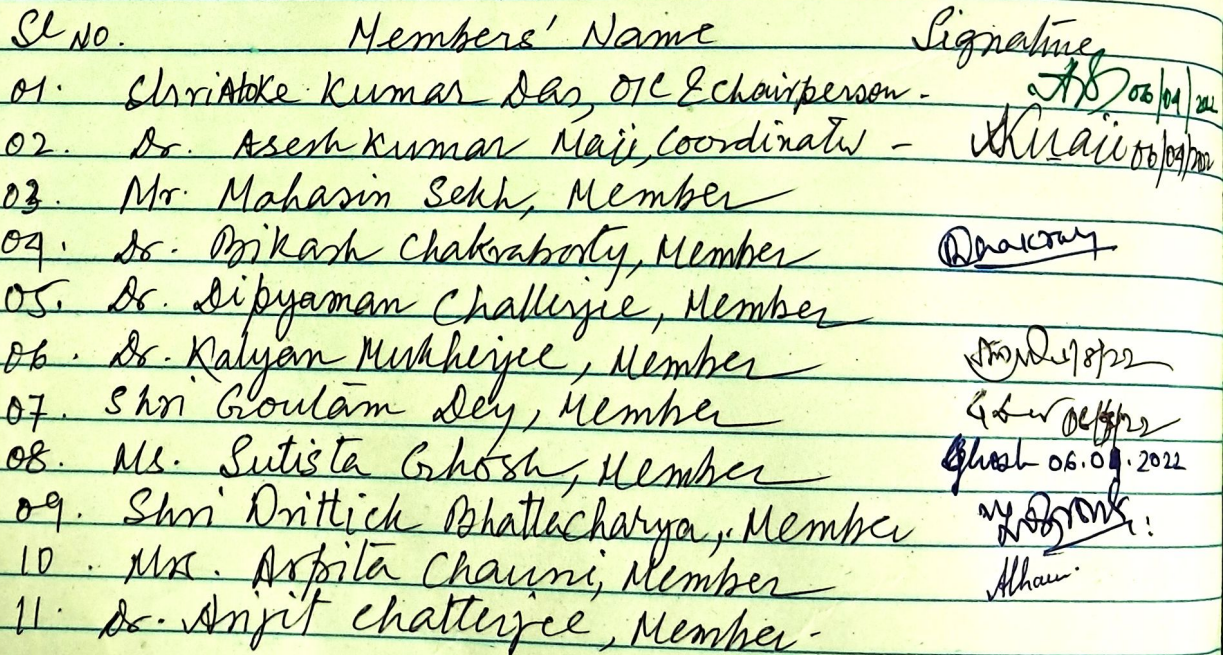 Sl No. Members' Name Signature
01. Shri Aloke Kumar Das, OIC & chairperson - 06/09/2022
02. Dr. Asesh Kumar Maji, Coordinator - AKMaji 06/09/2022
03. Mr. Mahasin Sekh, Member
04. Dr. Bikash Chakraborty, Member
05. Dr. Dipyaman Chatterjee, Member
06. Dr. Kalyan Mukherjee, Member
07. Shri Goutam Dey, Member
08. Ms. Sutista Ghosh, Member Ghosh 06.09.2022
09. Shri Drittick Bhattacharya, Member
10. Mrs. Arpita Chauni, Member
11. Dr. Anjit Chatterjee, Member-